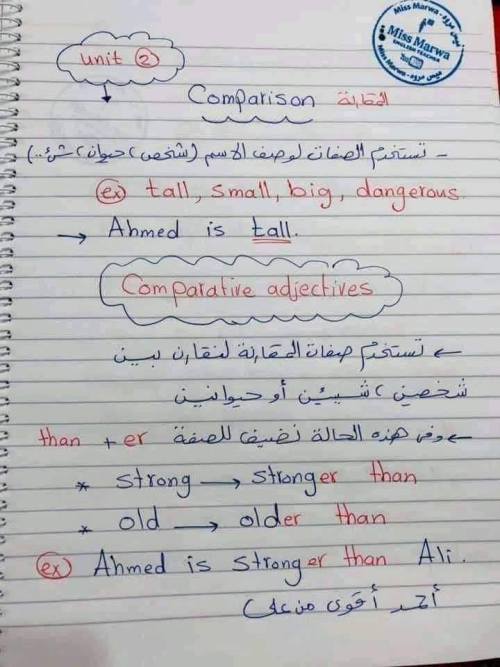 Miss Marwa - ميس مروة
Miss Marwa
ENGLISH TEACHER
Miss Marwa - ميس مروة
unit ②
Comparison المقارنة
- تستخدم الصفات لوصف الاسم (شخص، حيوان، شئ..)
ex tall, small, big, dangerous
→ Ahmed is tall.
Comparative adjectives
← تستخدم صفات المقارنة لنقارن بين
شخصين، شيئين أو حيوانين
← وفى هذه الحالة نضيف للصفة er + than
* strong → stronger than
* old → older than
ex Ahmed is stronger than Ali.
أحمد أقوى من على